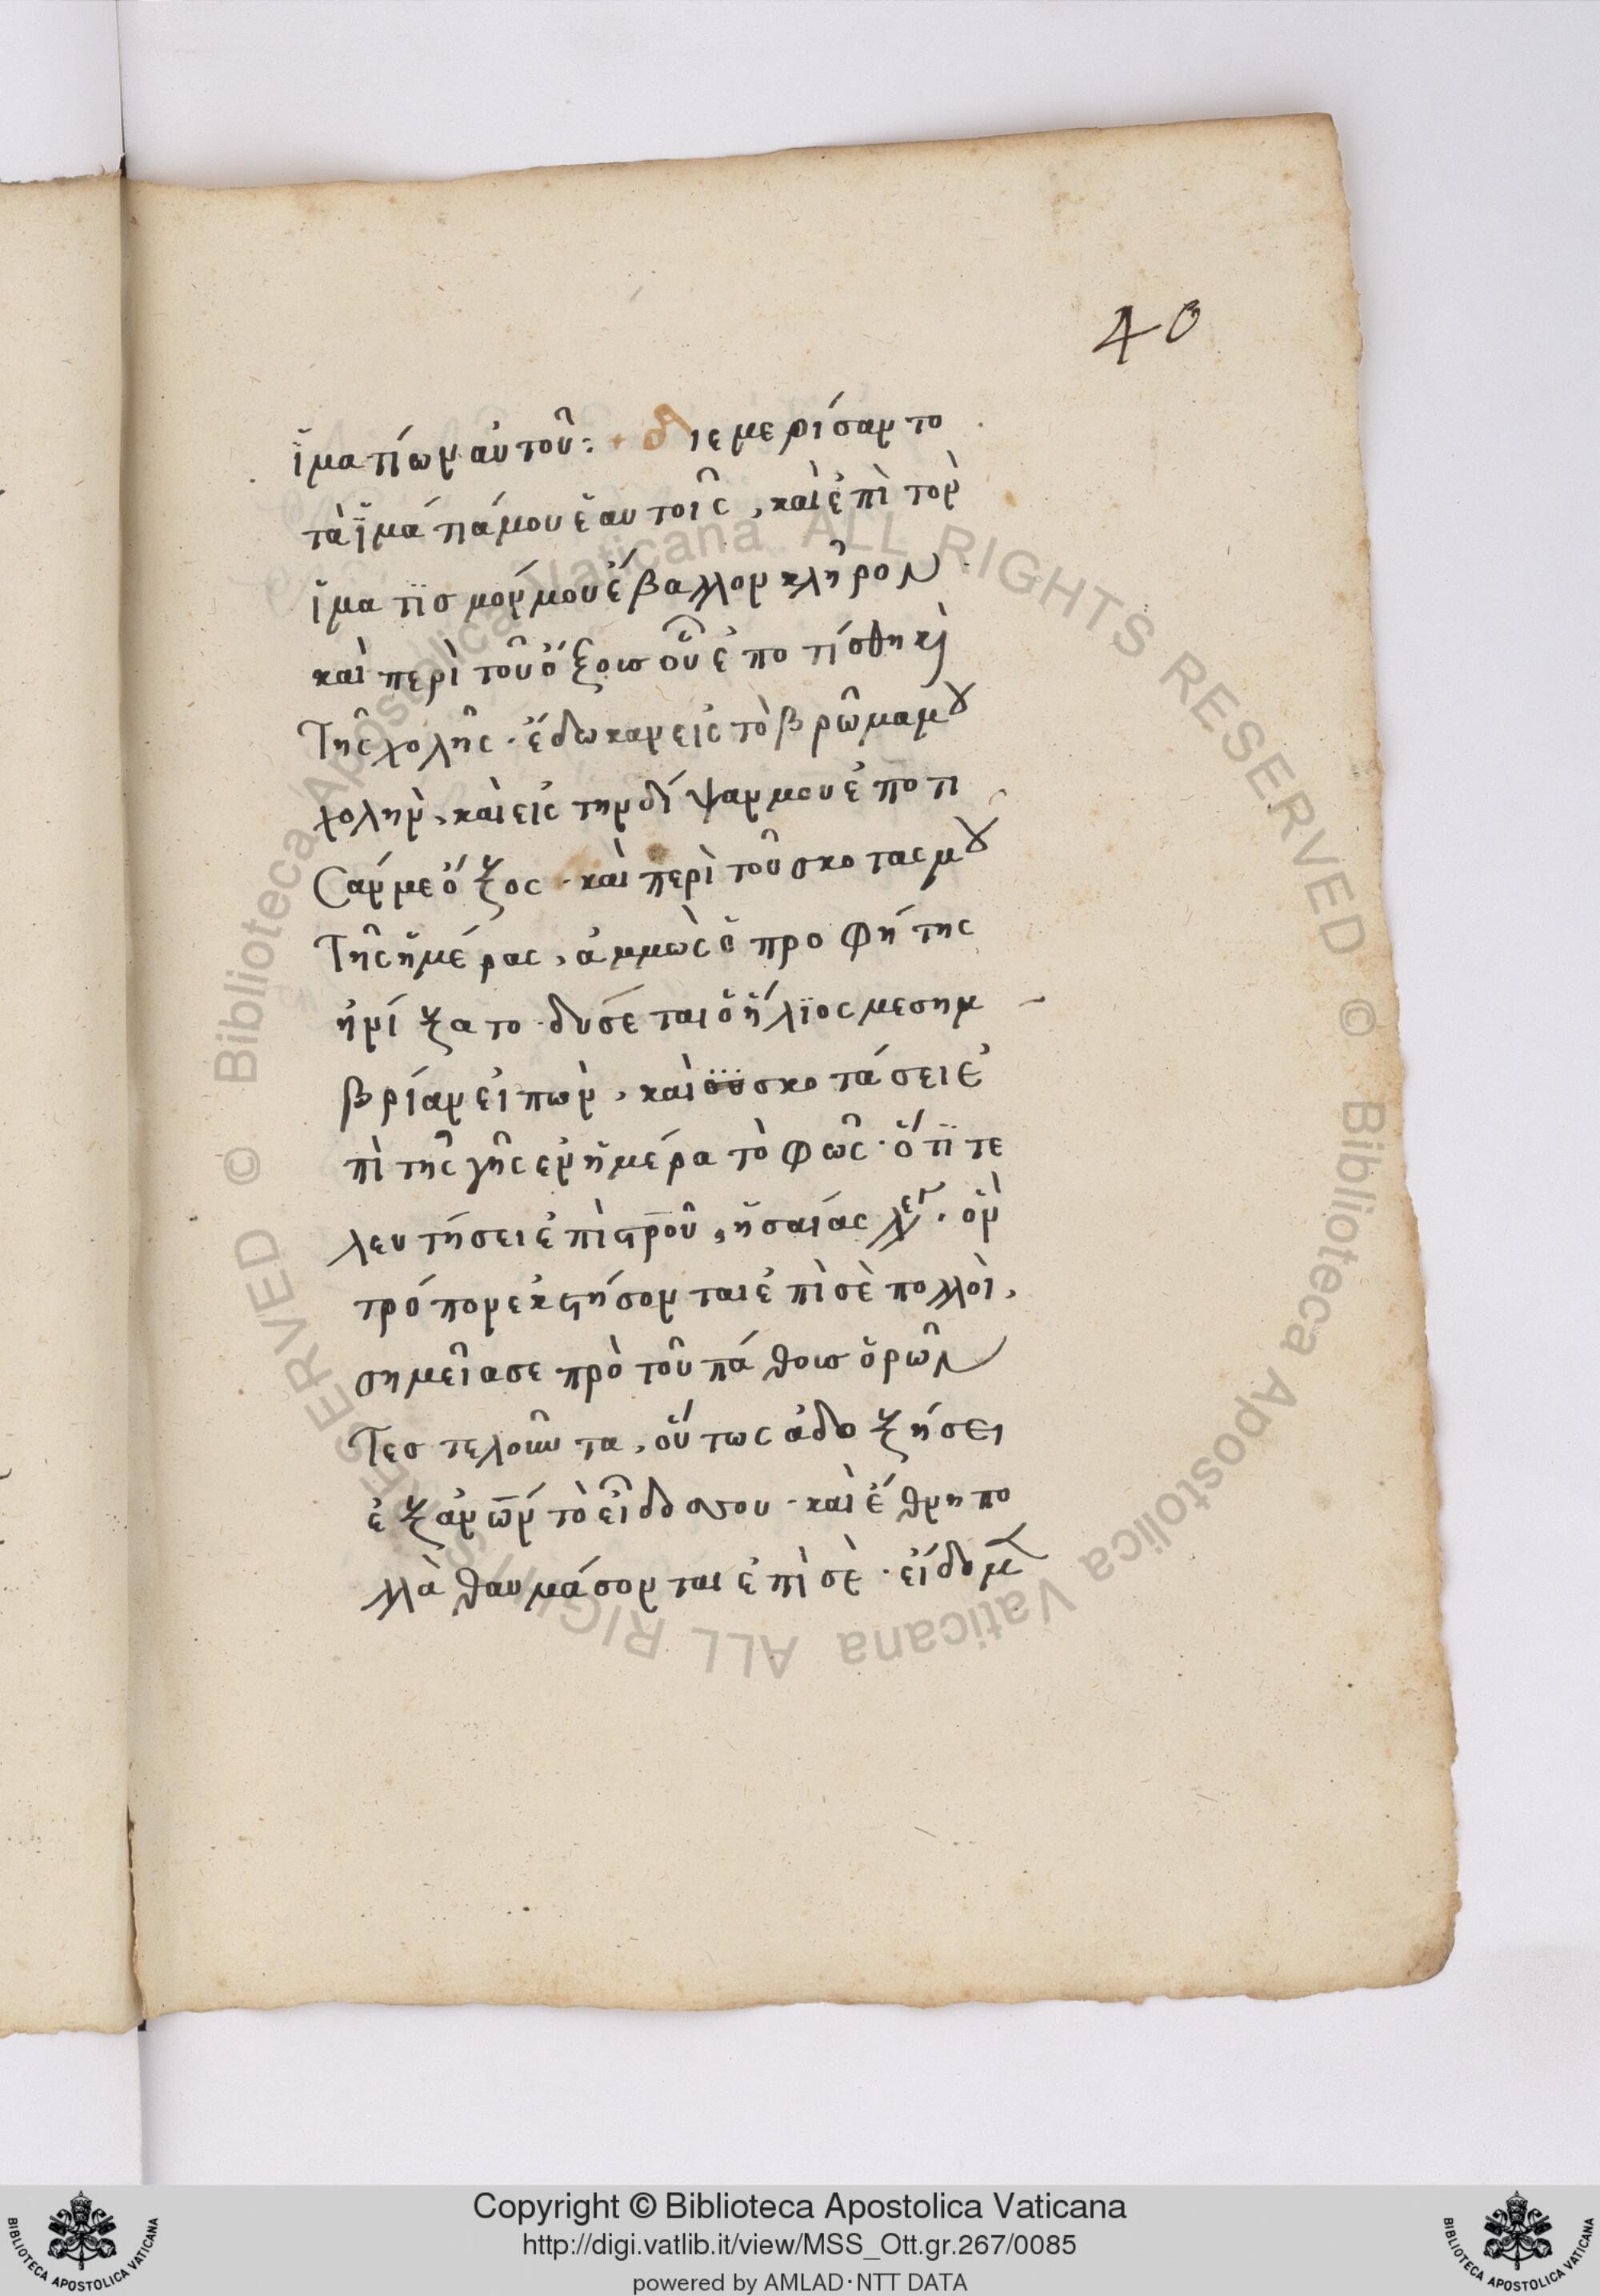 40
ἱματίων αὐτοῦ: + διεμερίσαντο
τὰ ἱμάτιά μου ἑαυτοῖς, καὶ ἐπὶ τὸν
ἱματϊσμόν μου ἔβαλλον κλῆρον.
καὶ περὶ τοῦ ὄξους οὗ ἐποτίσθη κ̀
τῆς χολῆς. ἔδωκαν εἰς τὸ βρῶμα μου
χολὴν, καὶ εἰς τὴν δίψαν μου ἐπότι
σάν με ὄξος. καὶ περὶ τοῦ σκοτασμοῦ
τῆς ἡμέρας, ἀμμὼς ὁ προφήτης
ἠνίξατο. δύσεται ὁ ἥλϊος μεσημ
βρίαν εἰπὼν, καὶ συσκοτάσει ἐ
πὶ τῆς γῆς ἐν ἡμέρα τὸ φῶς. ὅτϊ τε
λευτήσει ἐπὶ στροῦ, ἡσαίας λέγει. ὃν
τρόπον ἐκστήσονται ἐπὶ σὲ πολλοὶ,
σημεῖα σε πρὸ τοῦ πάθους ὁρῶν
τες τελοῦντα, οὕτως ἀδοξήσει
ἐξ ἀνῶν τὸ εἶδος σου. καὶ ἔθνη πο
λλὰ θαυμάσονται ἐπὶ σὲ. εἴδομεν
Copyright © Biblioteca Apostolica Vaticana
http://digi.vatlib.it/view/MSS_Ott.gr.267/0085
powered by AMLAD·NTT DATA
BIBLIOTECA APOSTOLICA VATICANA
BIBLIOTECA APOSTOLICA VATICANA
© Biblioteca Apostolica Vaticana ALL RIGHTS RESERVED
© Biblioteca Apostolica Vaticana ALL RIGHTS RESERVED